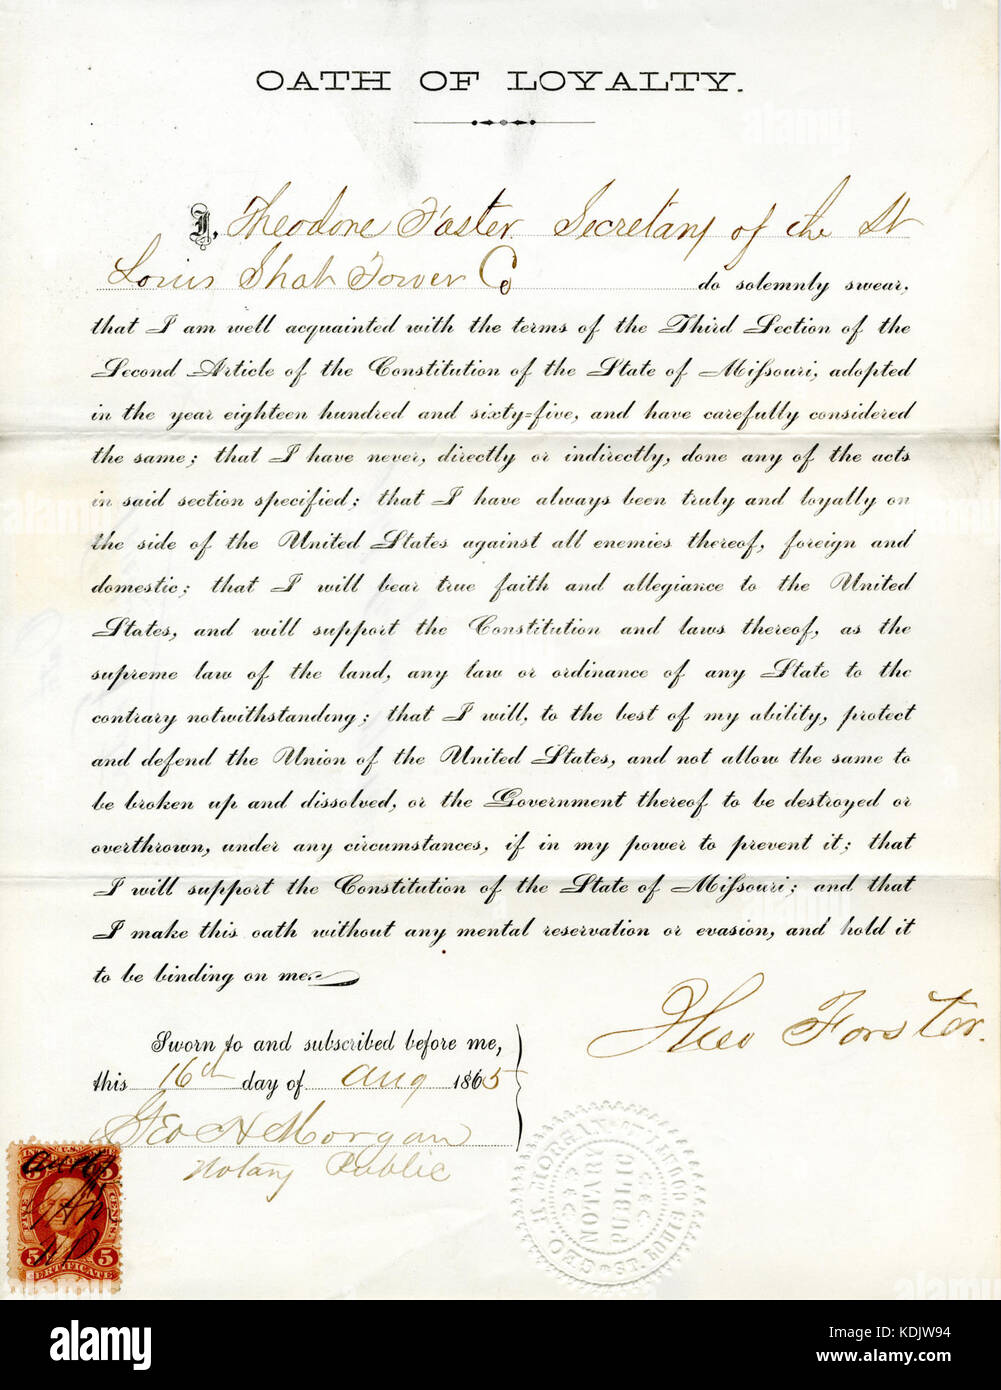 OATH OF LOYALTY.
I, Theodore Foster Secretary of the St
Louis Shot Tower Co do solemnly swear,
that I am well acquainted with the terms of the Third Section of the
Second Article of the Constitution of the State of Miſsouri, adopted
in the year eighteen hundred and sixty=five, and have carefully considered
the same; that I have never, directly or indirectly, done any of the acts
in said section specified; that I have always been truly and loyally on
the side of the United States against all enemies thereof, foreign and
domestic; that I will bear true faith and allegiance to the United
States, and will support the Constitution and laws thereof, as the
supreme law of the land, any law or ordinance of any State to the
contrary notwithstanding; that I will, to the best of my ability, protect
and defend the Union of the United States, and not allow the same to
be broken up and dissolved, or the Government thereof to be destroyed or
overthrown, under any circumstances, if in my power to prevent it; that
I will support the Constitution of the State of Miſsouri; and that
I make this oath without any mental reservation or evasion, and hold it
to be binding on me.
Theo Forster.
Sworn to and subscribed before me,
this 16th day of Aug 1865
Geo H Morgan
Notary Public
GEO. H. MORGAN ST. LOUIS COUNTY ST. LOUIS
NOTARY
PUBLIC
5 5
FIVE CENTS
5 5
CERTIFICATE
alamy
Image ID: KDJW94
www.alamy.com